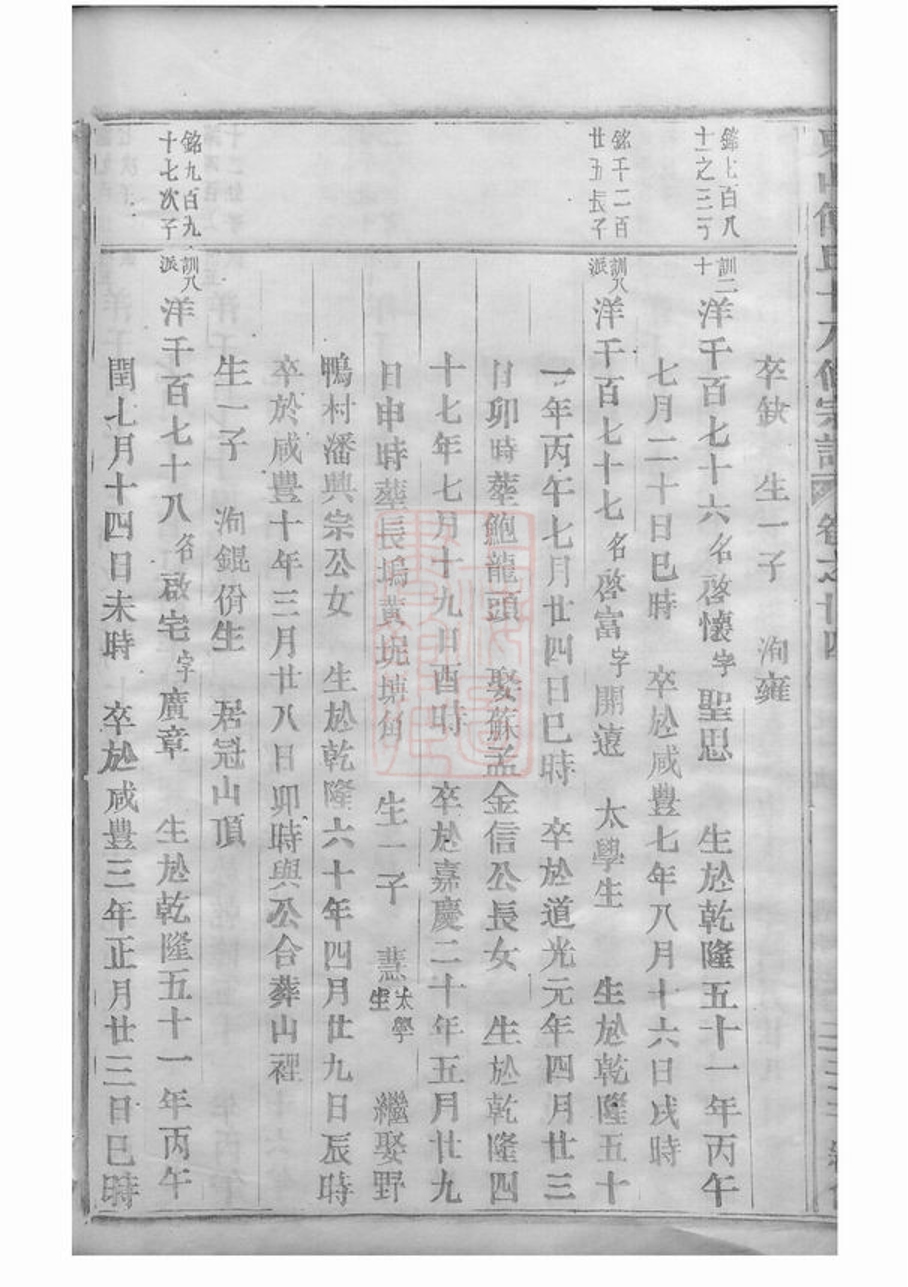 卒缺 生一子 洵雍
銘七百八
十之三子
訓二
十
洋千百七十六名啓懷字聖思 生於乾隆五十一年丙午
七月二十日巳時 卒於咸豐七年八月十六日戌時
銘千二百
廿五長子
訓八
派
洋千百七十七名啓富字開遠 太學生 生於乾隆五十
一年丙午七月廿四日巳時 卒於道光元年四月廿三
日卯時葬鮑龍頭 娶蘇孟金信公長女 生於乾隆四
十七年七月十九日酉時 卒於嘉慶二十年五月廿九
日申時葬長塢黄坭塘角 生一子 慧太學生 繼娶野
鴨村潘興宗公女 生於乾隆六十年四月廿九日辰時
卒於咸豐十年三月廿八日卯時與公合葬山裡
生一子 洵錕佾生 居冠山頂
銘九百九
十七次子
訓八
派
洋千百七十八名啟宅字廣章 生於乾隆五十一年丙午
閏七月十四日未時 卒於咸豐三年正月廿三日巳時